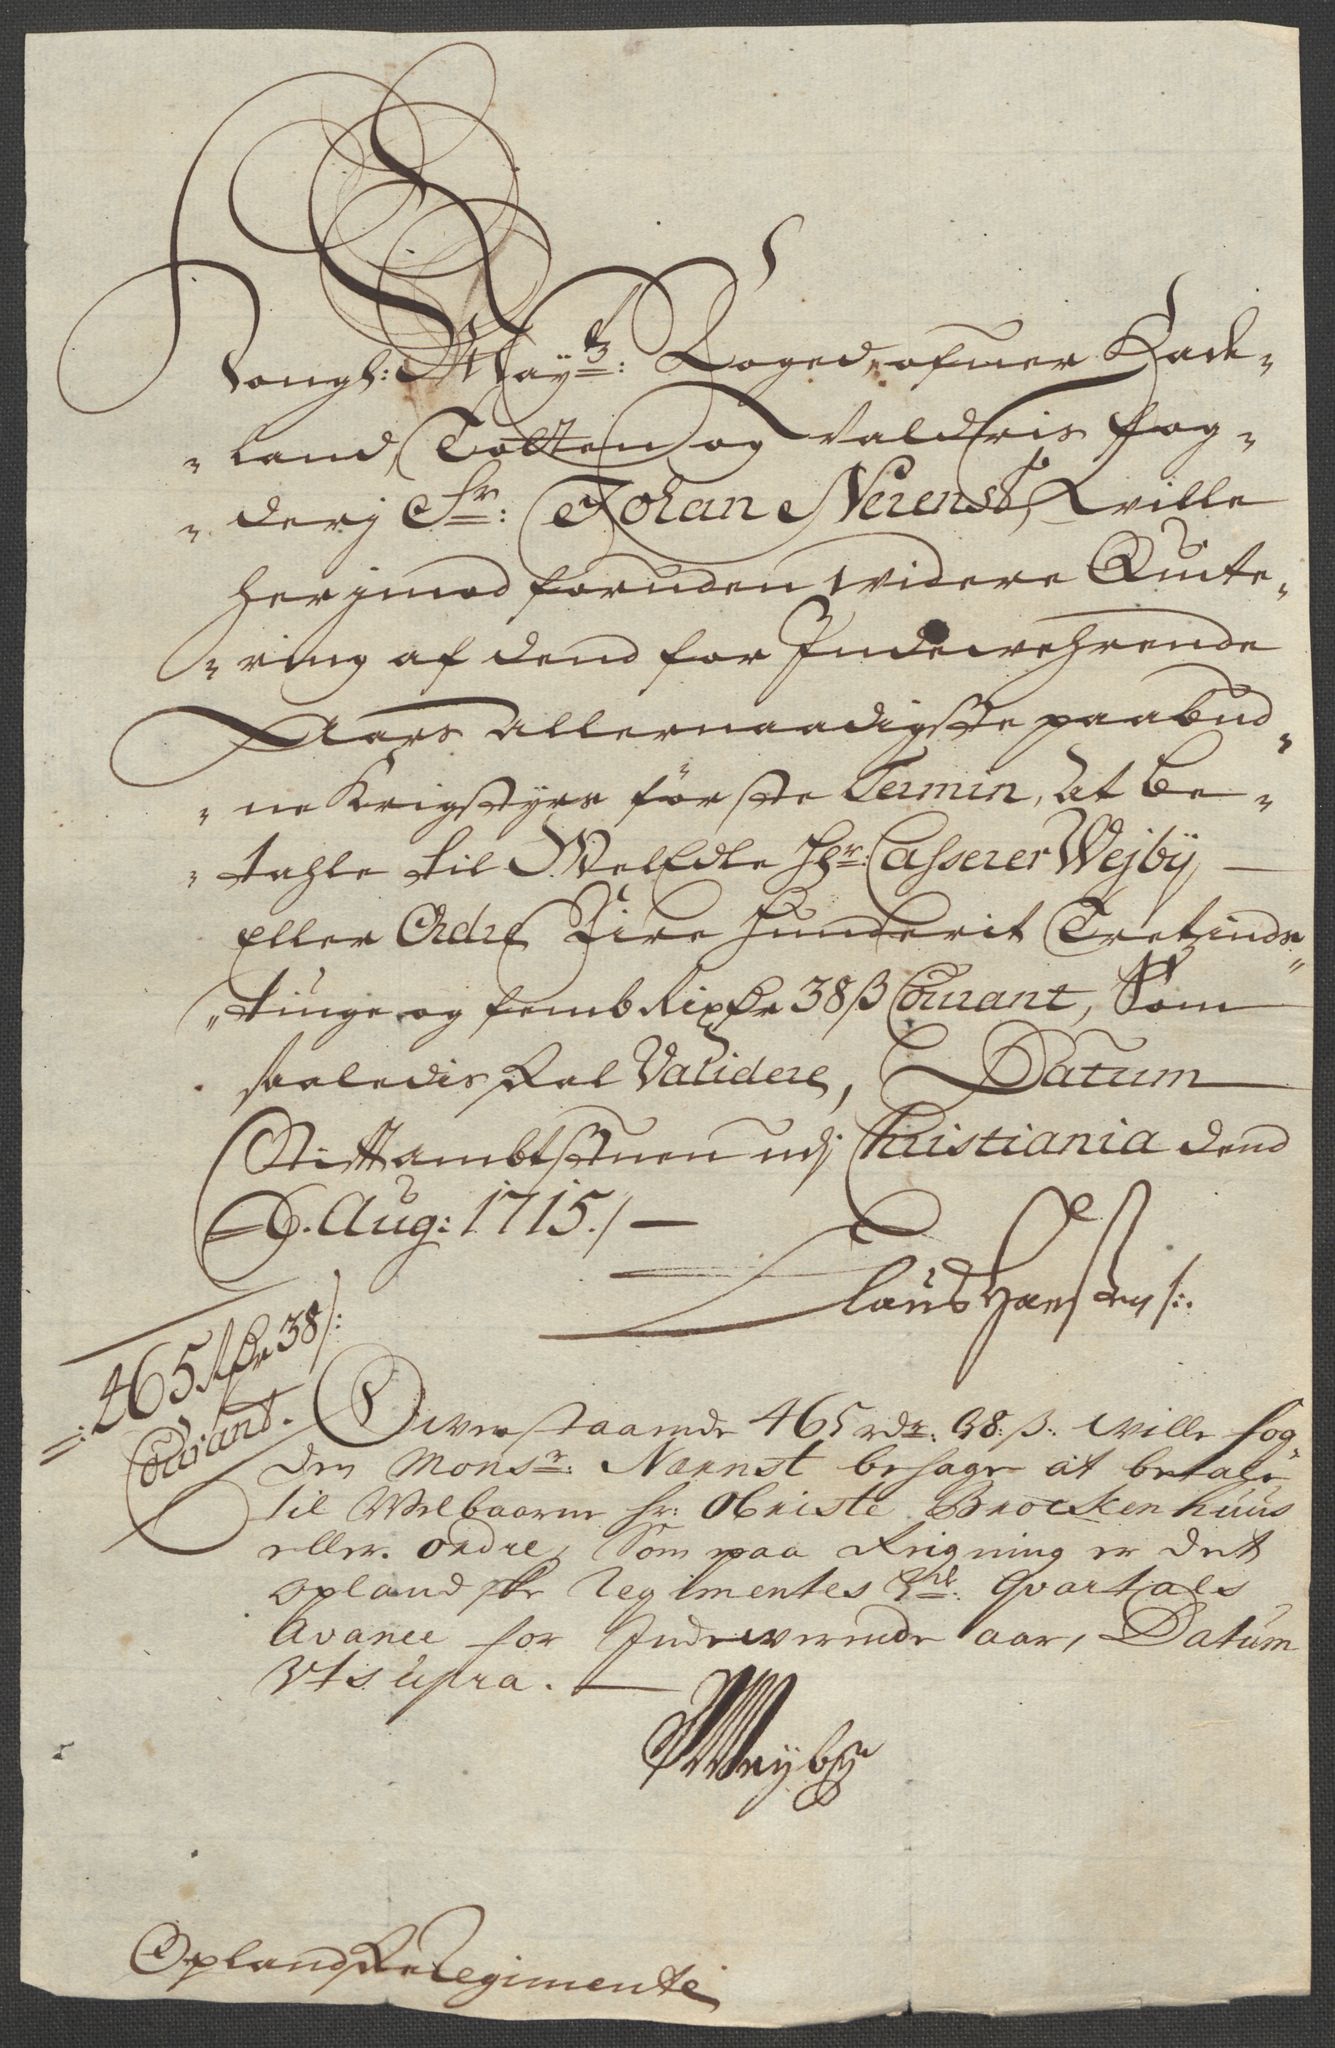 Kongl: Mayts: Foged ofuer Hade-
„land, Totten og Valdris fog-
„derj Sr: Johan Neienst, wille
her imod foruden widere Quite-
„ring af dend for Indewehrende
Aars allernaadigste paabud„
„ne Krigstyrs förste Termin, at be„
„tahle til WelEdle Hr: Casserer Wejbÿ
eller Ordre Fire Hundrit Tretzinds„
„tiuge og femb Rixdr 38 ß Courant, Som
saaledis skal Validere, Datum
Stiftambtstuen udj Christiania dend
9. Aug: 1715./
Claus Hansen
465 Rdr 38 ß:
Courant.
Ovenstaaende 465 rdr: 38: ß: wille fog„
den Monsr: Nærnst behage at betale
til Velbaarne hr: Obriste Brockenhuus
eller ordre, Som paa Reigning er det
oplandske Regimentes Quartals
Avance for Indewerende aar, Datum
Vt Supra.
Weyby
Oplandske Regimente